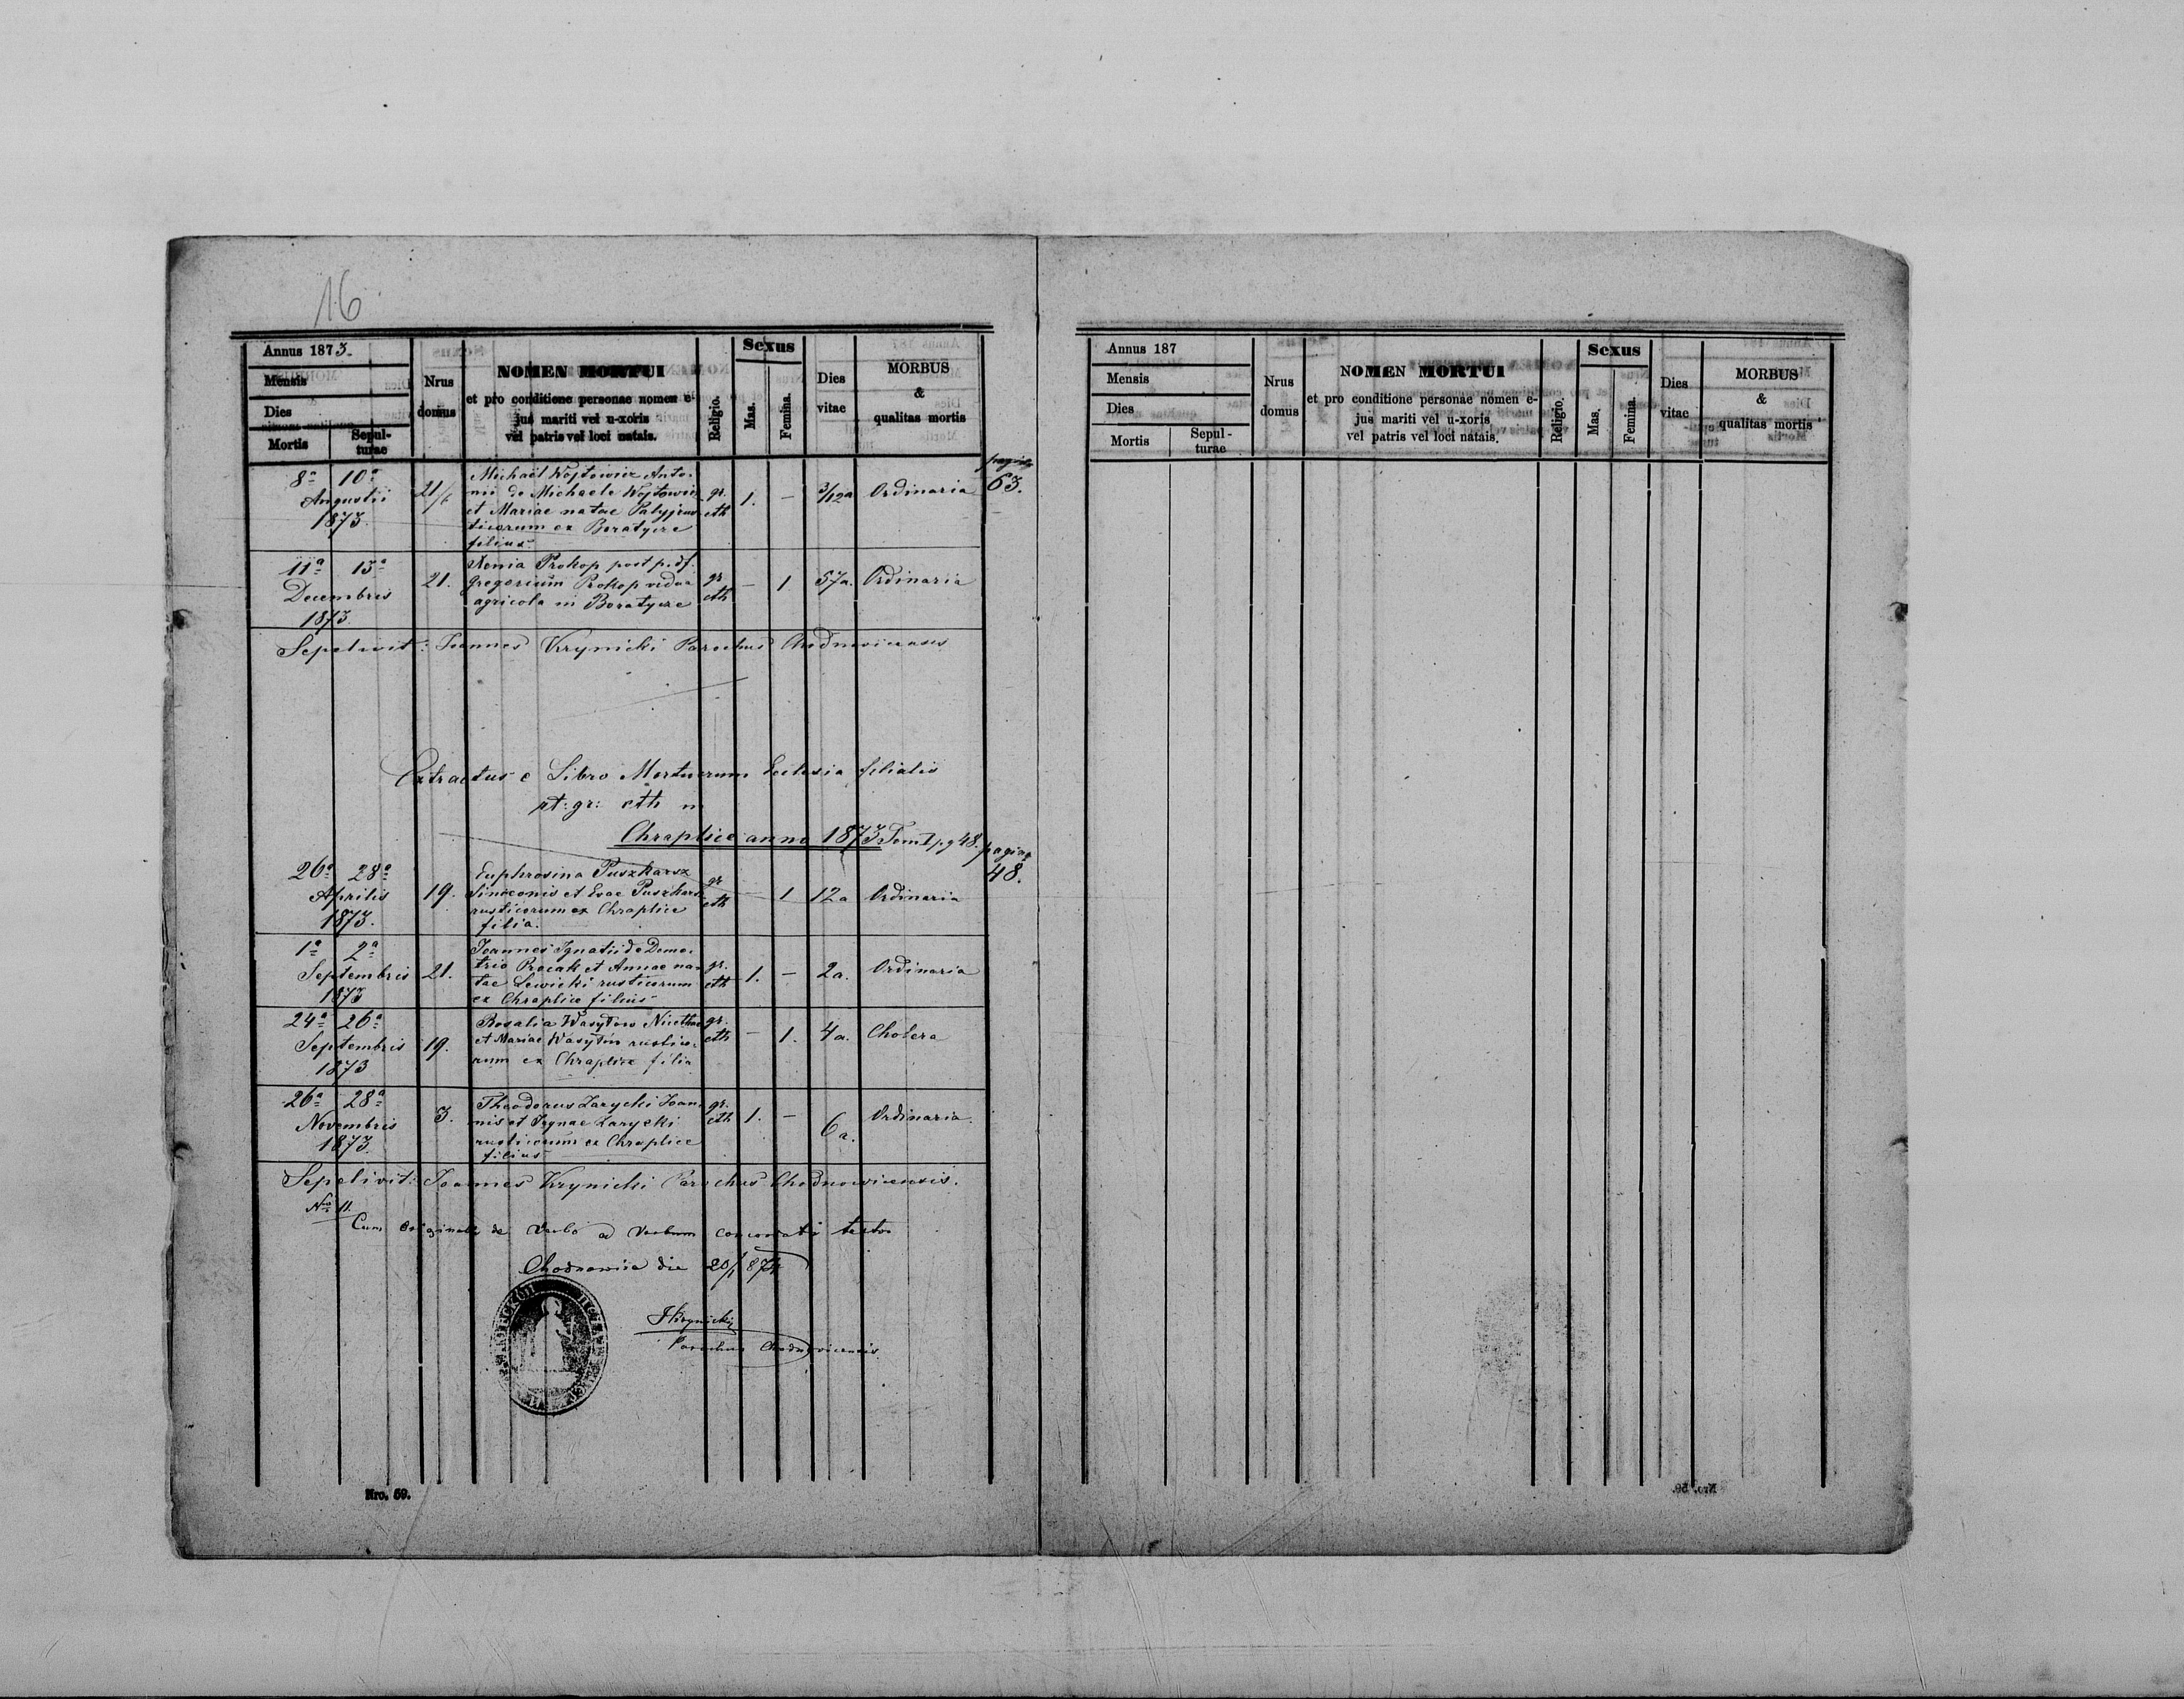 16
Annus 1873.
Mensis
Dies
Mortis
Sepul-
turae
Nrus
domus
NOMEN MORTUI
et pro conditione personae nomen e-
jus mariti vel u-xoris
vel patris vel loci natais.
Religio.
Sexus
Mas.
Femina.
Dies
vitae
MORBUS
&
qualitas mortis
pagina
63.
8ª 10ª
Augustii
1873.
21/
Michaël Wojtowicz Anto-
nii de Michaele Wojtowicz
et Mariae natae
ticorum ex Boratycze
filius
gr.
cth
1. — 3/12a Ordinaria
11ª 13ª
Decembris
1873.
21.
Xenia Prokop post p. df.
Gregorium Prokop vidua
agricola in Boratycze
gr
cth
— 1 57a. Ordinaria
Sepelivit: Joannes Krynicki Parochus Chodnowicensis
Extractus e Libro Mortuorum Ecclesia filialis
rt: gr: cth in
Chraplice anno 1873 Tom I pg 48.
pagina
48.
26ª 28ª
Aprilis
1873.
19.
Euphrosina Puszkarz
Simeonis et Evae Puszkarz
rusticorum ex Chraplice
filia.
gr
cth
— 1 12a Ordinaria
1ª 2ª
Septembris
1873
21.
Joannes Ignatii de Deme-
trio Procak et Annae na-
tae Lewicki rusticorum
ex Chraplice filius
gr.
cth
1. — 2a. Ordinaria
24ª 26ª
Septembris
1873
19.
Rosalia Wasylow Nicethae
et Mariae Wasylow rustico-
rum ex Chraplice filia
gr.
cth
— 1. 4a. Cholera
26ª 28ª
Novembris
1873.
3.
Theodorus Zarycki Joan-
nis et Agnae Zarycki
rusticorum ex Chraplice
filius
gr.
cth
1. — 6a. Ordinaria.
Sepelivit: Joannes Krynicki Parochus Chodnowicensis.
Nro 11.
Cum originali de verbo ad verbum concordati testor
Chodnowice die 20/1 874
JKrynicki
Parochus Chodnowicensis
Nro. 59.
Annus 187
Mensis
Dies
Mortis
Sepul-
turae
Nrus
domus
NOMEN MORTUI
et pro conditione personae nomen e-
jus mariti vel u-xoris
vel patris vel loci natais.
Religio.
Sexus
Mas.
Femina.
Dies
vitae
MORBUS
&
qualitas mortis